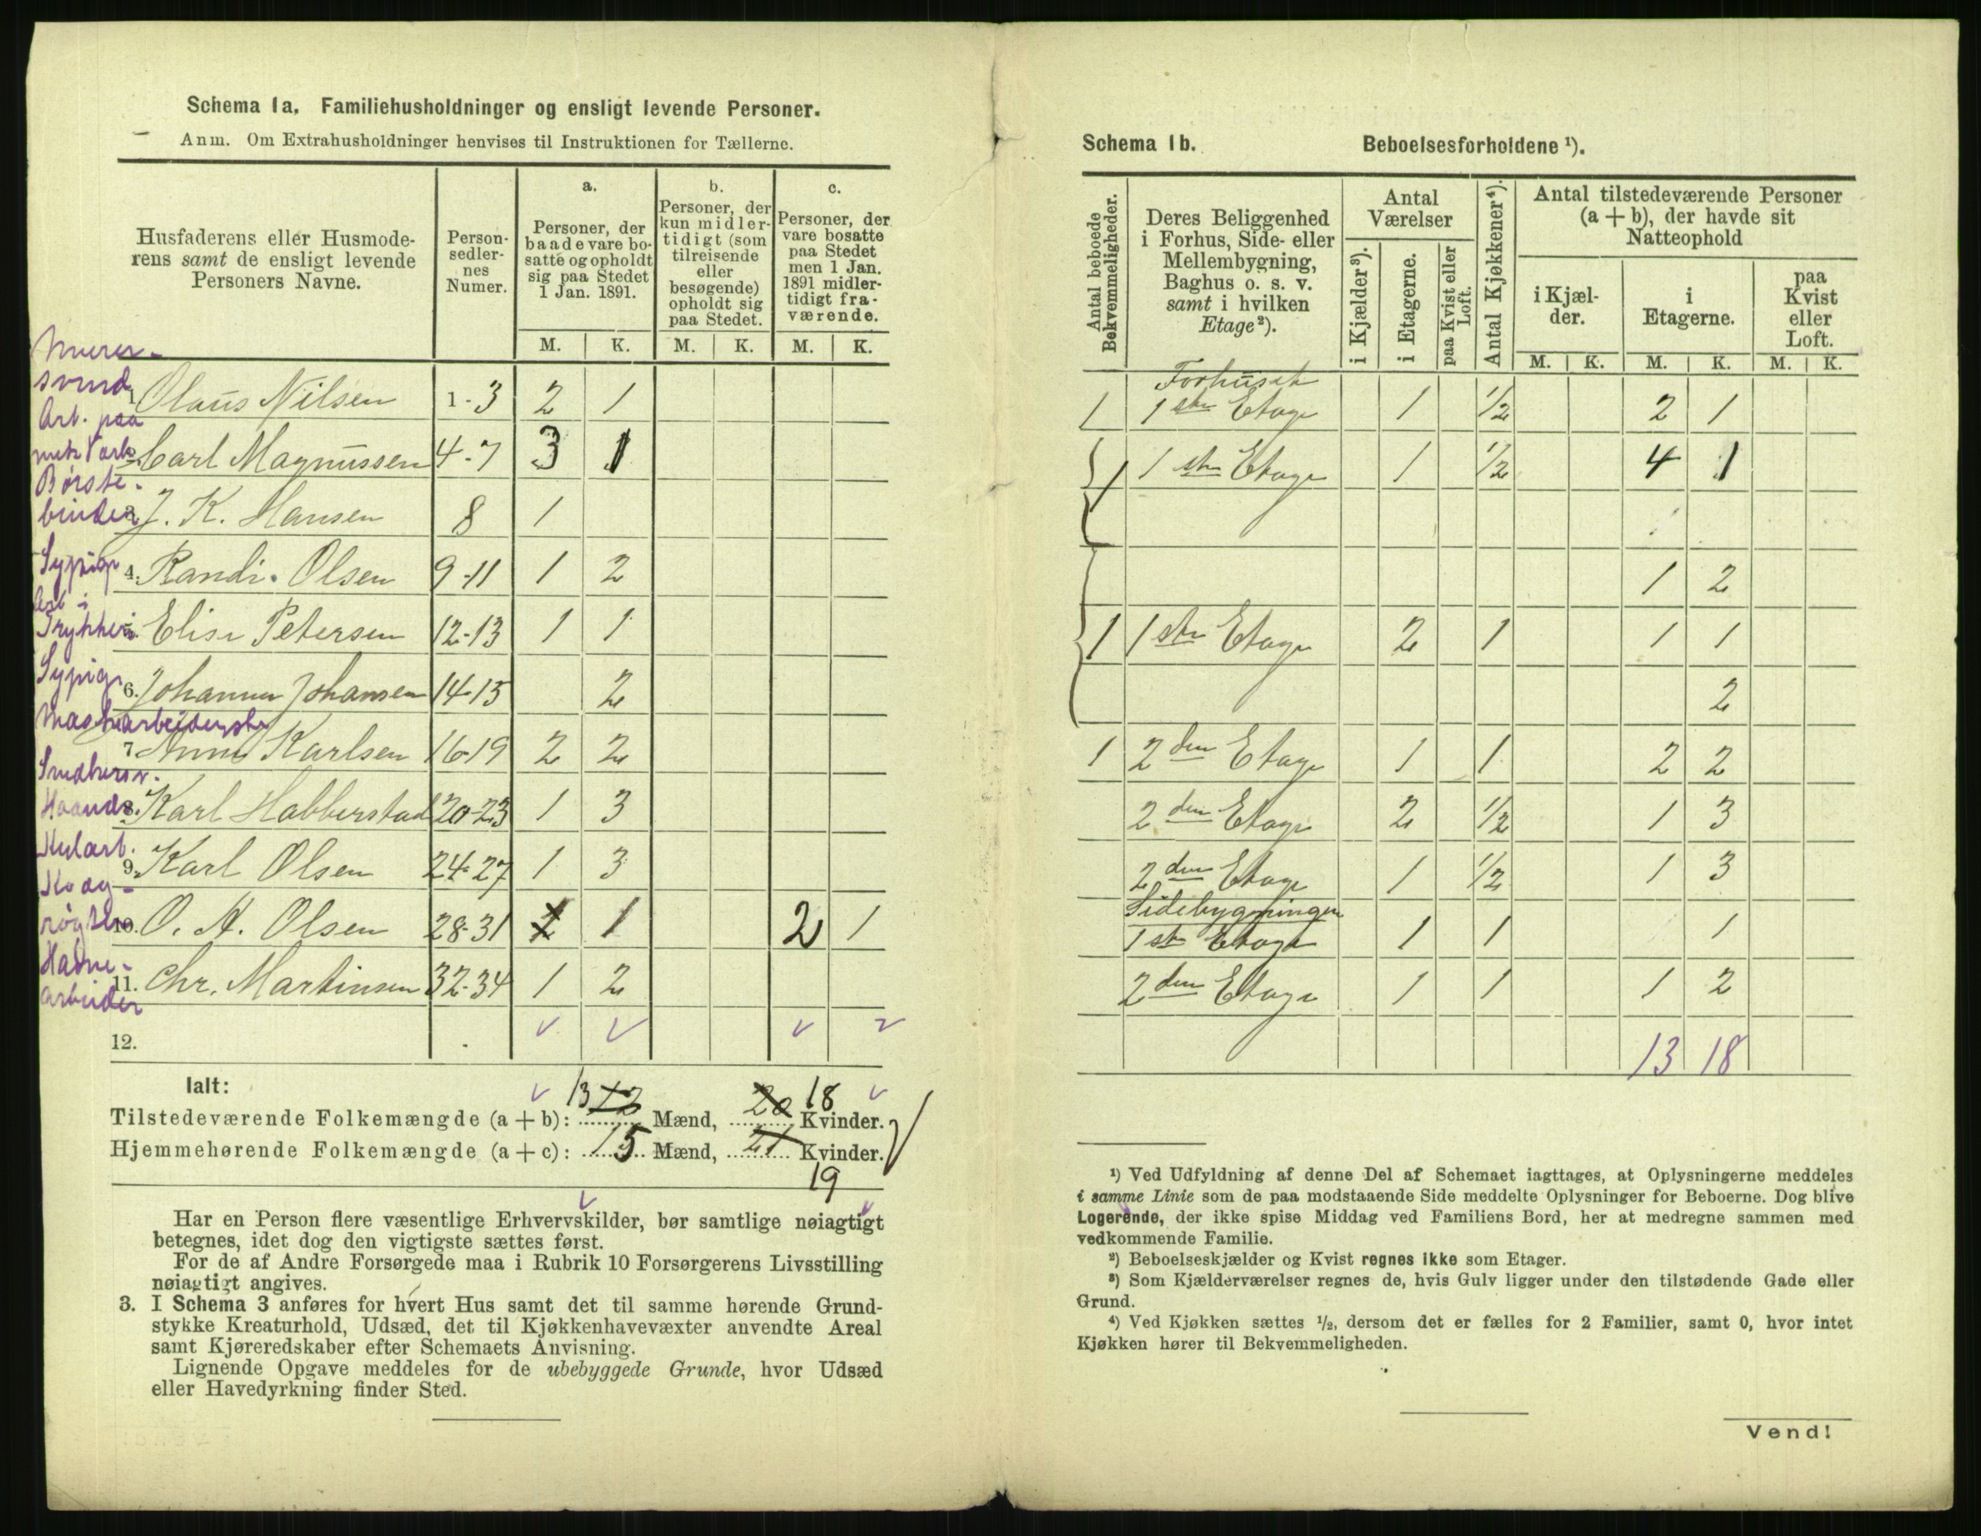 Schema 1a. Familiehusholdninger og ensligt levende Personer.
Anm. Om Extrahusholdninger henvises til Instruktionen for Tællerne.
Husfaderens eller Husmode-
rens samt de ensligt levende
Personers Navne.
Person-
sedler-
nes
Numer.
a.
Personer, der
baade vare bo-
satte og opholdt
sig paa Stedet
1 Jan. 1891.
b.
Personer, der
kun midler-
tidigt (som
tilreisende
eller
besøgende)
opholdt sig
paa Stedet.
c.
Personer, der
vare bosatte
paa Stedet
men 1 Jan.
1891 midler-
tidigt fra-
værende.
M. K. M. K. M. K.
Murer-
svend
1. Olaus Nilsen 1-3 2 1
Arb. paa
mek Værk
2. Carl Magnussen 4-7 3 1
Børste-
binder
3. J. K. Hansen 8 1
Sypige
4. Randi Olsen 9-11 1 2
Arb i
Trykkeri
5. Elise Petersen 12-13 1 1
Sypige
6. Johanna Johansen 14-15 2
7. Anna Karlsen 16-19 2 2
8. Karl Habberstad 20-23 1 3
Kularb.
9. Karl Olsen 24-27 1 3
10. O. A. Olsen 28-31 1 2 1
Havne-
arbeider
11. Chr. Martinsen 32-34 1 2
12.
Ialt:
Tilstedeværende Folkemængde (a + b): 13 12 Mænd, 20 18 Kvinder.
Hjemmehørende Folkemængde (a + c): 15 Mænd, 21 Kvinder.
19
Har en Person flere væsentlige Erhvervskilder, bør samtlige nøiagtigt
betegnes, idet dog den vigtigste sættes først.
For de af Andre Forsørgede maa i Rubrik 10 Forsørgerens Livsstilling
nøiagtigt angives.
3. I Schema 3 anføres for hvert Hus samt det til samme hørende Grund-
stykke Kreaturhold, Udsæd, det til Kjøkkenhavevæxter anvendte Areal
samt Kjøreredskaber efter Schemaets Anvisning.
Lignende Opgave meddeles for de ubebyggede Grunde, hvor Udsæd
eller Havedyrkning finder Sted.
Schema 1b. Beboelsesforholdene ¹).
Antal beboede
Bekvemmeligheder.
Deres Beliggenhed
i Forhus, Side- eller
Mellembygning,
Baghus o. s. v.
samt i hvilken
Etage²).
Antal
Værelser
i Kjælder³).
i Etagerne.
paa Kvist eller
Loft.
Antal Kjøkkener⁴).
Antal tilstedeværende Personer
(a + b), der havde sit
Natteophold
i Kjæl-
der.
i
Etagerne.
paa
Kvist
eller
Loft.
M. K. M. K. M. K.
Forhuset
1 1ste Etage 1 1/2 2 1
1 1ste Etage 1 1/2 4 1
1 2
1 1ste Etage 2 1 1 1
2
1 2den Etage 1 1 2 2
2den Etage 2 1/2 1 3
2den Etage 1 1/2 1 3
Sidebygningen
1ste Etage 1 1 1
2den Etage 1 1 1 2
13 18
¹) Ved Udfyldning af denne Del af Schemaet iagttages, at Oplysningerne meddeles
i samme Linie som de paa modstaaende Side meddelte Oplysninger for Beboerne. Dog blive
Logerende, der ikke spise Middag ved Familiens Bord, her at medregne sammen med
vedkommende Familie.
²) Beboelseskjælder og Kvist regnes ikke som Etager.
³) Som Kjælderværelser regnes de, hvis Gulv ligger under den tilstødende Gade eller
Grund.
⁴) Ved Kjøkken sættes ¹/₂, dersom det er fælles for 2 Familier, samt 0, hvor intet
Kjøkken hører til Bekvemmeligheden.
Vend!